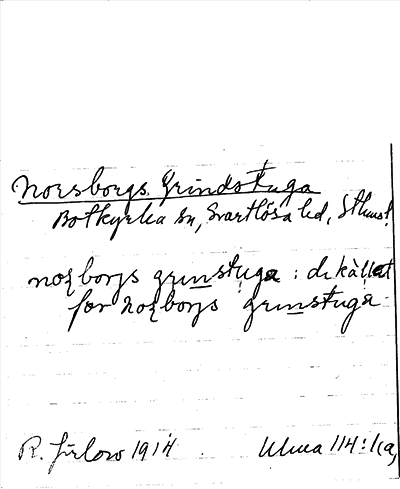 Norsborgs Grindstuga
Botkyrka sn, Svartlösa hd, Sthms l.
noʂborjs grinstuga : dε kàḷḷat
for noʂborjs grinstuga
R. Jirlow 1914